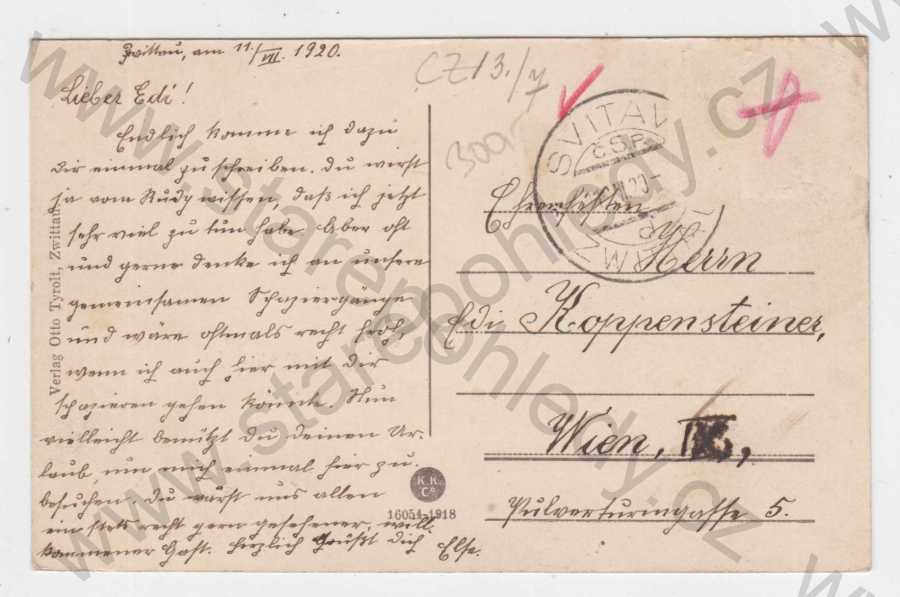 Zwittau, am 11./VII. 1920.
Lieber Edi!
Endlich komme ich dazu
Dir einmal zu schreiben. Du wirst
ja vom Rudy wissen, daß ich jetzt
sehr viel zu tun habe. Aber oft
und gerne denke ich an unsere
gemeinsamen Spaziergänge
und wäre oftmals recht froh,
wenn ich auch hier mit Dir
spazieren gehen könnte. Nun
vielleicht benützt Du deinen Ur-
laub, um mich einmal hier zu
besuchen. Du wärst uns allen
ein stets recht gern gesehener, will-
kommener Gast. Herzlich grüßt dich Else.
Verlag Otto Tyrolt, Zwittau
K.K.
Co
16054-1918
CZ13./7
300,-
SVITAV
Č.S.P.
ZWITTAU
Herrn
Edi Koppensteiner,
Wien, IX.,
Pulverturmgasse 5.
www.starepohledy.cz